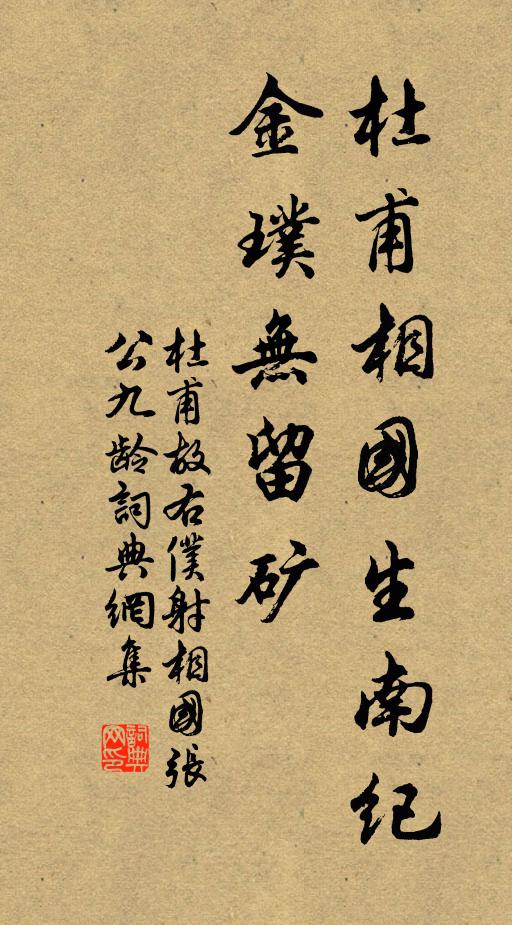 杜甫相國生南紀
金璞無留矿
杜甫故右僕射相國張
公九龄詞典網集
詞典
网印